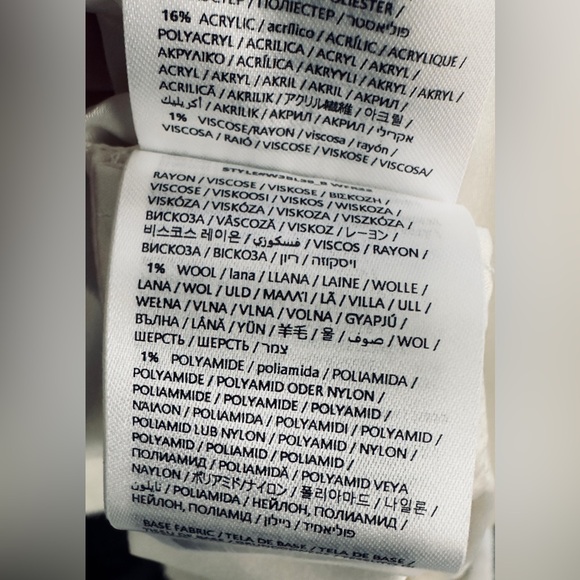 ПОЛІЕСТЕР / פוליאסטר
16% ACRYLIC / acrílico / ACRÍLIC / ACRYLIQUE /
POLYACRYL / ACRILICA / ACRYL / AKRYL /
ΑΚΡΥΛΙΚΟ / ACRÍLICA / AKRYYLI / AKRYL / AKRYL /
ACRYL / AKRYL / AKRIL / AKRIL / АКРИЛ /
ACRILICĂ / AKRILIK / アクリル繊維 / 아크릴 /
أكريليك / AKRILIK / АКРИЛ / АКРИЛ / אקרילי
1% VISCOSE/RAYON / viscosa / rayón /
VISCOSA / RAIÓ / VISCOSE / VISKOSE / VISCOSA/
RAYON / VISCOSE / VISKOSE / ΒΙΣΚΟΖΗ /
VISCOSE / VISKOOSI / VISKOS / WISKOZA /
VISKÓZA / VISKOZA / VISKOZA / VISZKÓZA /
ВИСКОЗА / VÂSCOZĂ / VISKOZ / レーヨン /
비스코스 레이온 / فسكوزي / VISCOS / RAYON /
ВИСКОЗА / ВІСКОЗА / ויסקוזה / ריון
1% WOOL / lana / LLANA / LAINE / WOLLE /
LANA / WOL / ULD / ΜΑΛΛΊ / LÃ / VILLA / ULL /
WEŁNA / VLNA / VLNA / VOLNA / GYAPJÚ /
ВЪЛНА / LÂNĂ / YÜN / 羊毛 / 울 / صوف / WOL /
ШЕРСТЬ / ШЕРСТЬ / צמר
1% POLYAMIDE / poliamida / POLIAMIDA /
POLYAMIDE / POLYAMID ODER NYLON /
POLIAMMIDE / POLYAMIDE / POLYAMID /
ΝΆΙΛΟΝ / POLIAMIDA / POLYAMIDI / POLYAMID /
POLIAMID LUB NYLON / POLYAMID / NYLON /
POLYAMID / POLIAMID / POLIAMID /
ПОЛИАМИД / POLIAMIDĂ / POLYAMID VEYA
NAYLON / ポリアミド/ナイロン / 폴리아마드 / 나일론 /
نايلون / POLIAMIDA / НЕЙЛОН, ПОЛИАМИД /
НЕЙЛОН, ПОЛІАМИД / ניילון / פוליאמיד
BASE FABRIC / TELA DE BASE / TELA DE BASE /